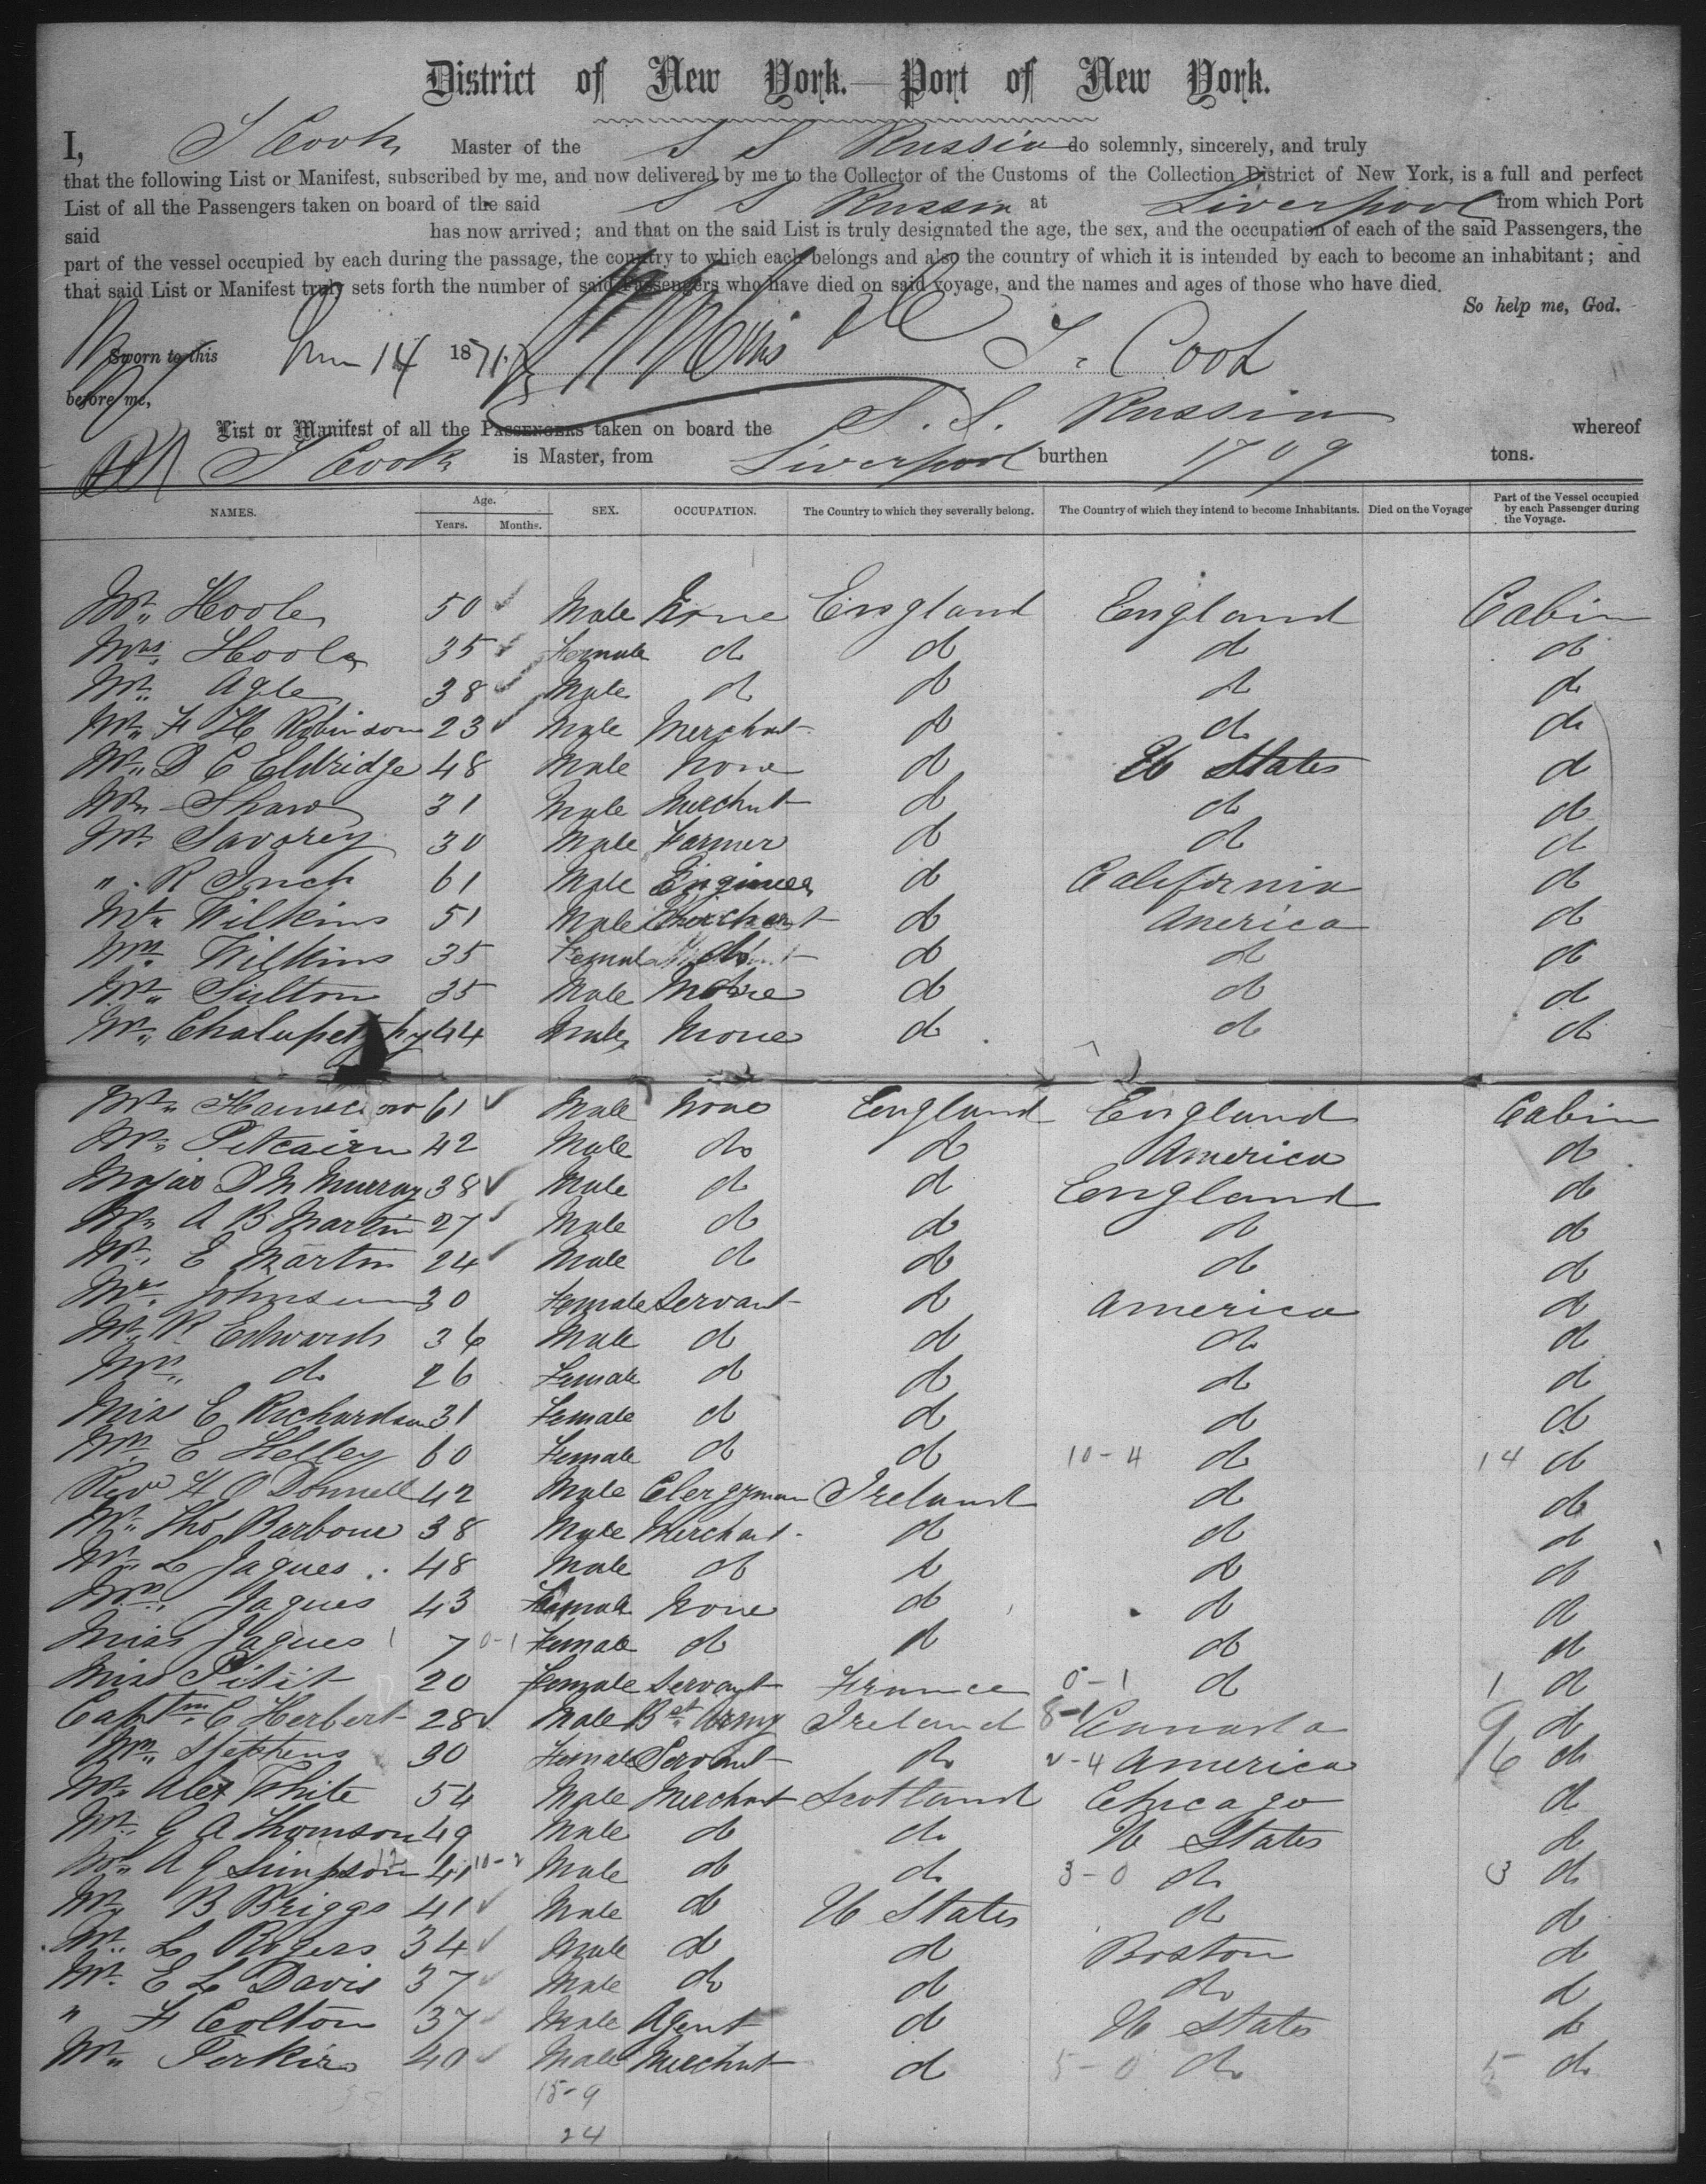 District of New York.—Port of New York.
I, T Cook Master of the S S Russia do solemnly, sincerely, and truly
that the following List or Manifest, subscribed by me, and now delivered by me to the Collector of the Customs of the Collection District of New York, is a full and perfect
List of all the Passengers taken on board of the said S S Russia at Liverpool from which Port
said has now arrived; and that on the said List is truly designated the age, the sex, and the occupation of each of the said Passengers, the
part of the vessel occupied by each during the passage, the country to which each belongs and also the country of which it is intended by each to become an inhabitant; and
that said List or Manifest truly sets forth the number of said Passengers who have died on said voyage, and the names and ages of those who have died.
So help me, God.
Sworn to this 14 1871 T. Cook
before me,
List or Manifest of all the PASSENGERS taken on board the S. S. Russia whereof
T Cook is Master, from Liverpool burthen 1709 tons.
NAMES. Age. Years. Months. SEX. OCCUPATION. The Country to which they severally belong. The Country of which they intend to become Inhabitants. Died on the Voyage Part of the Vessel occupied by each Passenger during the Voyage.
Mr. Hoole 50 Male None England England Cabin
Mrs. Hoole 35 Female do do do do
Mr. Agle 38 Male do do do do
Mr. F H Robinson 23 Male Merchant do do do
Mr. D C Eldridge 48 Male None do U States do
Mr Shaw 31 Male Merchnt do do do
Mr Savorey 30 Male Farmer do do do
" R Inch 61 Male Engineer do California do
Mr. Wilkins 51 Male Merchant do America do
Mrs. Wilkins 35 Female do do do do
Mr. Sulton 35 Male None do do do
Mr. 44 Male None do do do
Mr. 61 Male None England England Cabin
Mr. Pitcairn 42 Male do do America do
Major D M Murray 38 Male do do England do
Mr. A B Martin 27 Male do do do do
Mr. E Martin 24 Male do do do do
Mrs. Johnson 30 Female Servant do America do
Mr. R Edwards 36 Male do do do do
Mrs. do 26 Female do do do do
Miss C Richardson 31 Female do do do do
Mrs. E Helley 60 Female do do 10-4 do 14 do
Revd H O Donnell 42 Male Clergyman Ireland do do
Mr. Thos Barbour 38 Male Merchant do do do
Mr. L Jaques 48 Male do do do do
Mrs. Jaques 43 Female None do do do
Miss Jaques 7 0-1 Female do do do do
Miss Petit 20 Female Servant France 0-1 do 1 do
Captn. C Herbert 28 Male Bt. Army Ireland 8-1 Canada 9 do
Mrs. Stephens 30 Female Servant do 2-4 America 6 do
Mr. Alex White 54 Male Merchnt Scotland Chicago do
Mr. G A Thomson 49 Male do do U States do
Mr. A G Simpson 12 41 10-2 Male do do 3-0 do 3 do
Mr. B Briggs 41 Male do U States do do
Mr. L Rogers 34 Male do do Boston do
Mr. E L Davis 37 Male do do do do
" F Colton 37 Male Agent do U States do
Mr. Perkins 40 Male Merchnt do 5-0 do 5 do
15-9
24